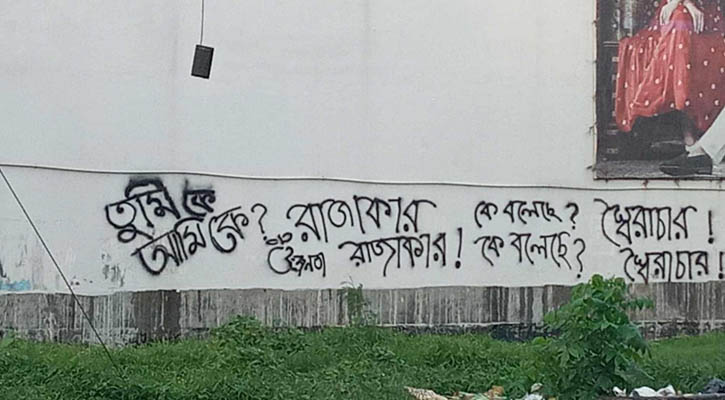 তুমি কে
আমি কে?
রাজাকার
রাজাকার!
কে বলেছে?
কে বলেছে?
স্বৈরাচার!
স্বৈরাচার!